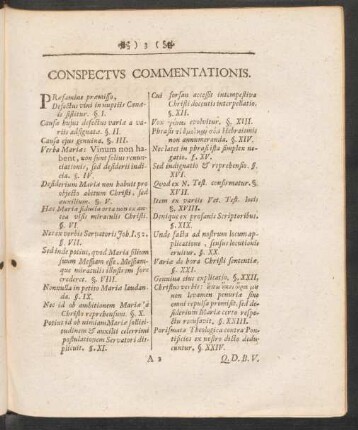 3
CONSPECTVS COMMENTATIONIS.
PRæfamine præmisso,
Defectus vini in nuptiis Canæ-
sistitur. §. I.
Causæ hujus defectus variæ a va-
riis adsignatæ. §. II.
Causa ejus genuina. §. III.
Verba Mariæ: Vinum non ha-
bent, non sunt solius renun-
tiationis, sed desiderii indi-
cia. §. IV.
Desiderium Mariæ non habuit pro
objecto alotum Christi, sed
auxilium. §. V.
Hæc Mariæ fiducia orta non ex an-
tea visis miraculis Christi.
§. VI
Nec ex verbis Servatoris Joh. I, 52.
§. VII.
Sed inde potius, quod Maria filium
suum Messiam esse, Messiam-
que miraculis illustrem fore
crederet. §. VIII.
Nonnulla in petito Mariæ laudan-
da. §. IX.
Nec id ob ambitionem Mariæ a
Christo reprehensum. §. X.
Potius id ob nimiam Mariæ sollici-
tudinem & auxilii celerrimi
postulationem Servatori di-
splicuit. §. XI.
Cui forsan accessit intempestiva
Christi docentis interpellatio.
§. XII.
Vox evolvitur. §. XIII.
Phrasis hebraismis
non annumeranda. §. XIV.
Nec latet in phrasi ista simplex ne-
gatio. §. XV.
Sed indignatio & reprehensio. §.
XVI.
Quod ex N. Test. confirmatur. §.
XVII.
Item ex variis Vet. Test. locis
§. XVIII.
Denique ex profanis Scriptoribus.
§. XIX.
Unde facta ad nostrum locum ap-
plicatione, sensus locutionis
eruitur. §. XX.
Varia de hora Christi sententiæ.
§. XXI.
Genuina ejus explicatio. §. XXII.
Christus verbis:
non levamen penuriæ sine
omni repulsa promisit, sed de-
siderium Mariæ certo respe-
ctu recusavit. §. XXIII.
Porismata Theologica contra Pon-
tificios ex nostro dicto dedu-
cuntur. §. XXIV.
A 2
Q. D. B. V.